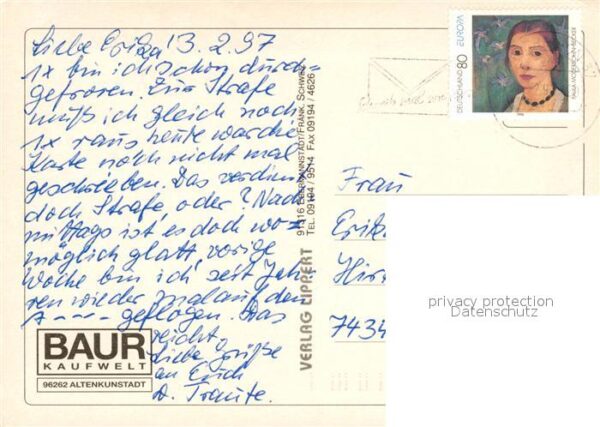 Liebe Erika! 3.2.97
1x bin ich schon durch-
gefroren. Zur Strafe
muß ich gleich noch
1x raus, heute war die
Karte noch nicht mal
geschrieben. Das verdient
doch Strafe, oder? Nach-
mittags ist es doch wo-
möglich glatt, vorige
Woche bin ich seit Jah-
ren wieder mal auf den
A---- geflogen. Das
reicht.
Liebe Grüße
an Erich
D. Traute.
BAUR
KAUFWELT
96262 ALTENKUNSTADT
VERLAG LIPPERT
91316 EBERMANNSTADT/FRÄNK. SCHWEIZ
TEL. 09194 / 9514 FAX 09194 / 4626
DEUTSCHLAND 80 EUROPA
PAULA MODERSOHN-BECKER
Frau
Erika
Hir
7434
privacy protection
Datenschutz